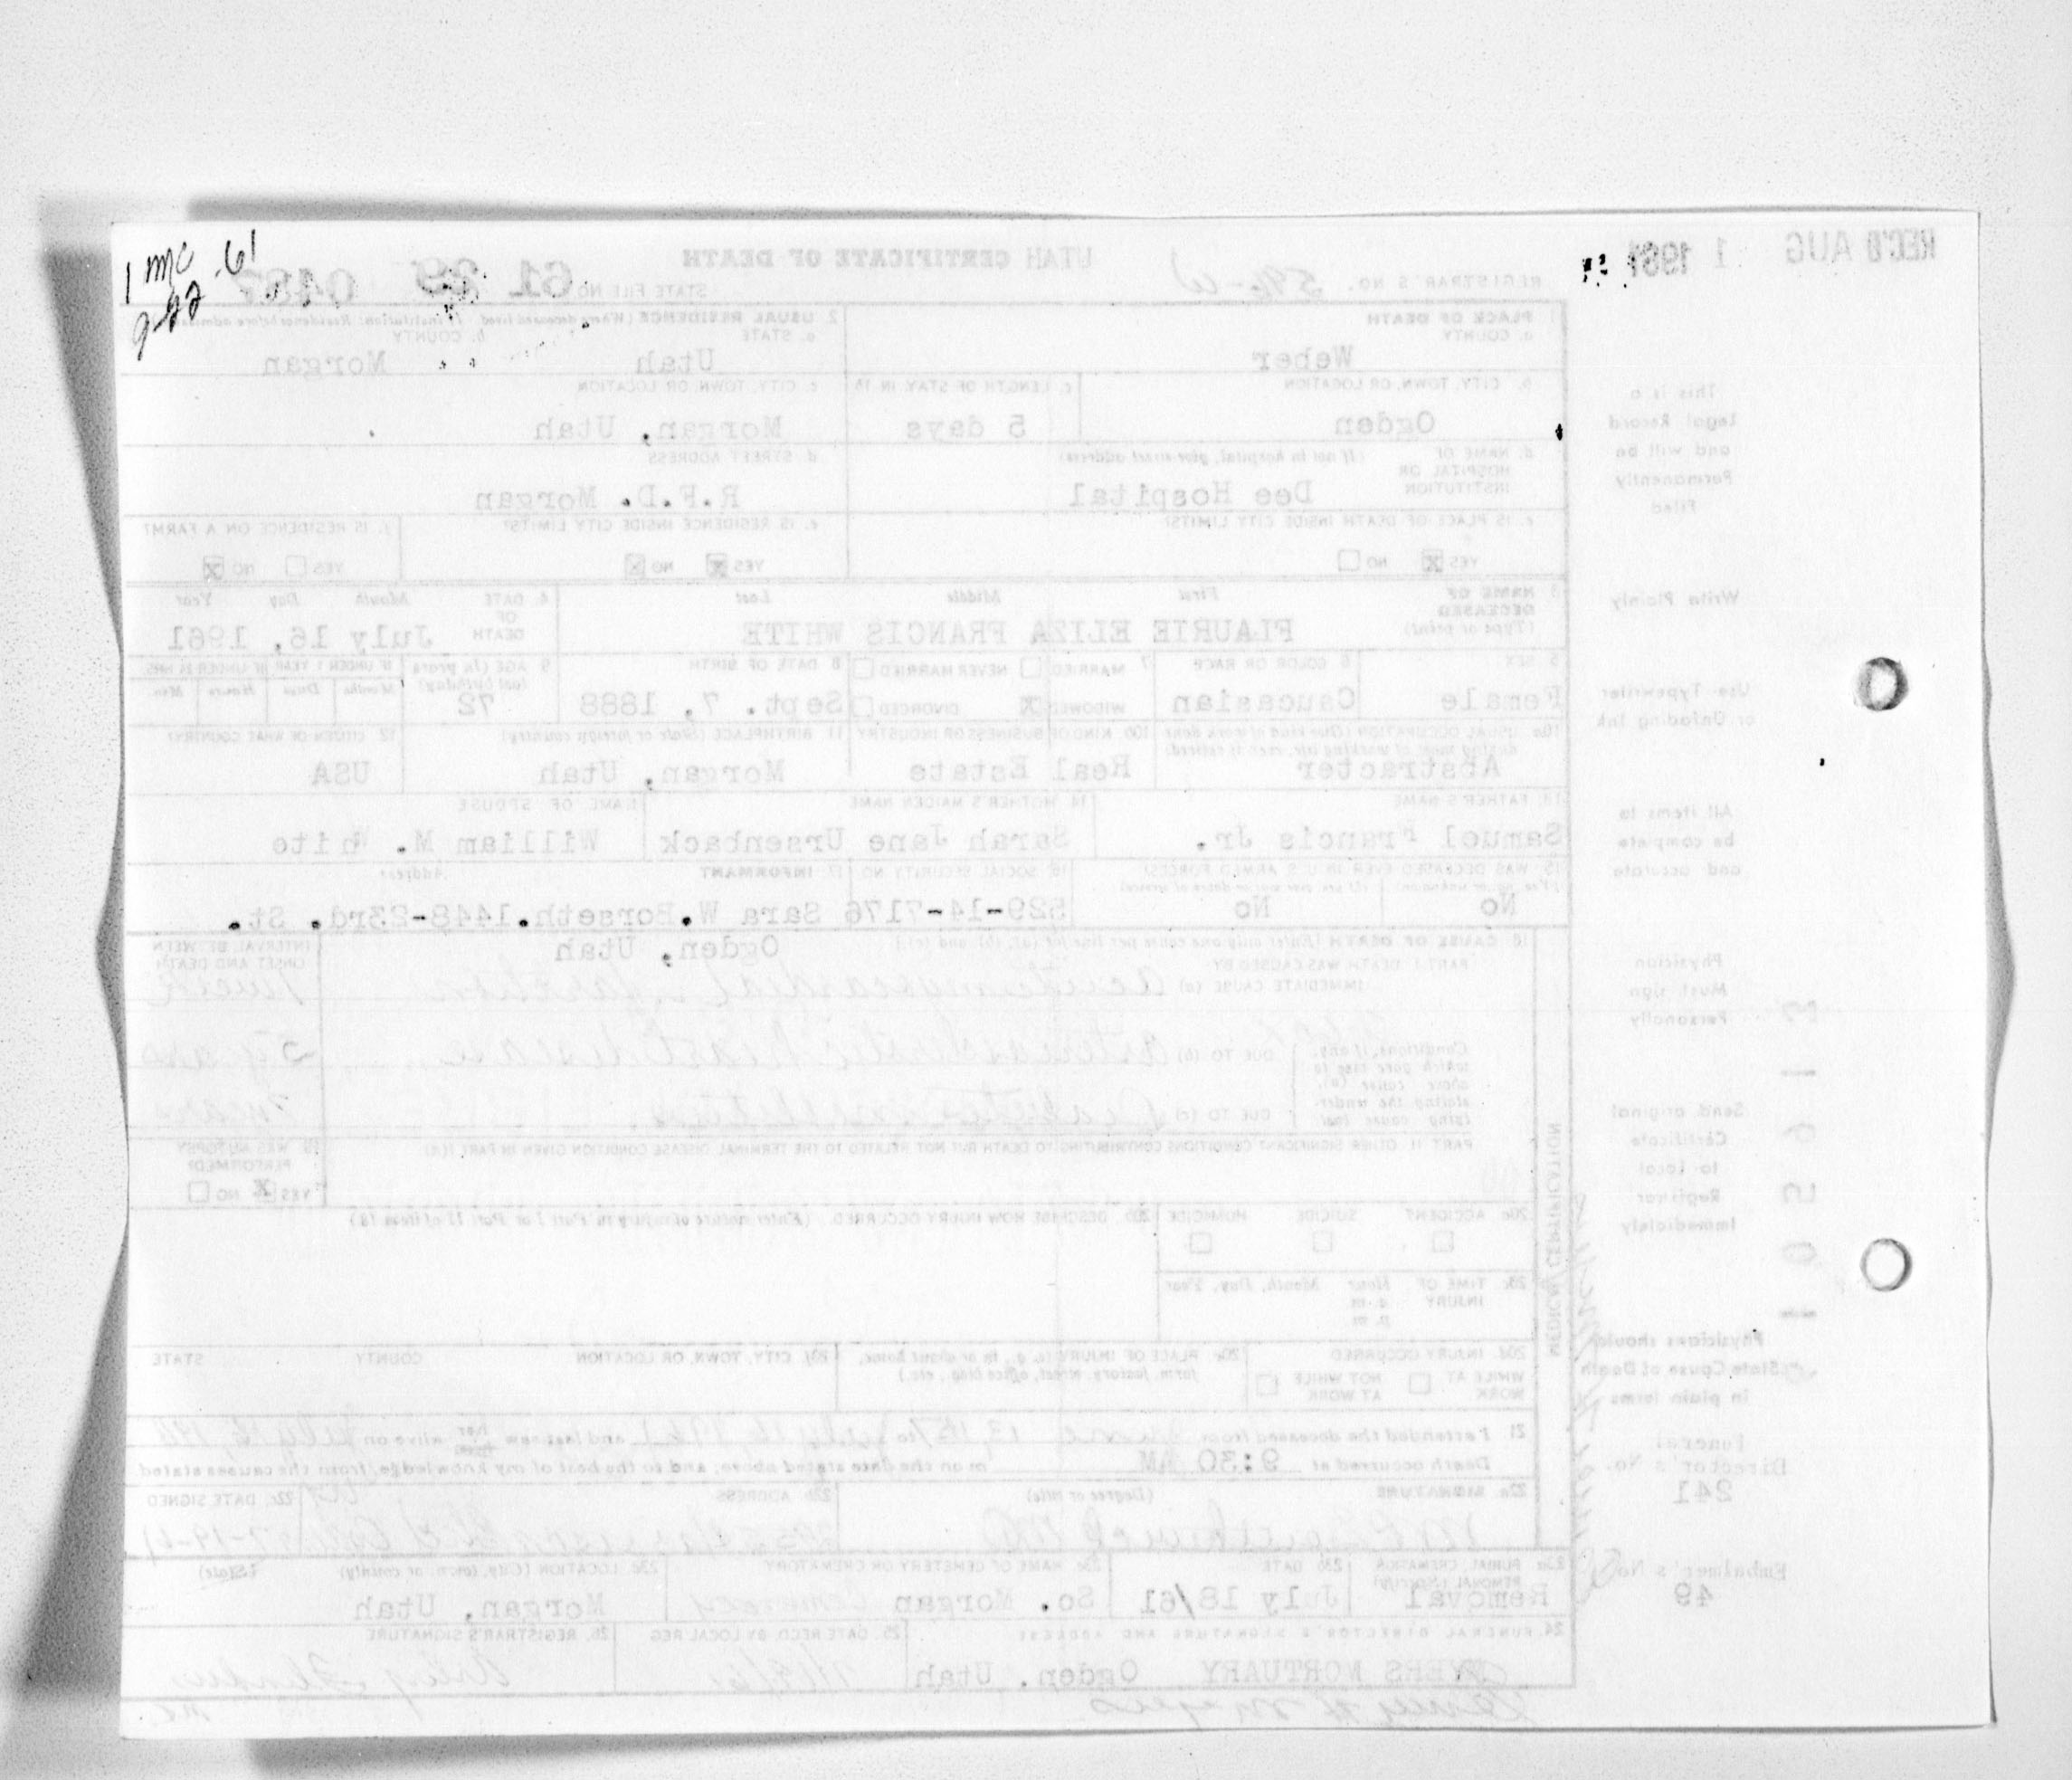 1 mc
9-22-61
REC'D AUG 1 1961
UTAH CERTIFICATE OF DEATH
REGISTRAR'S NO.
STATE FILE NO. 61 29 0487
This is a
Legal Record
and will be
Permanently
Filed
Write Plainly
Use Typewriter
or Unfading Ink
All items to
be complete
and accurate
Physician
Must sign
Personally
Send original
Certificate
to Local
Registrar
Immediately
Physicians should
State Cause of Death
in plain terms
Funeral
Director's No.
241
Embalmer's No.
49
1. PLACE OF DEATH
a. COUNTY
Weber
2. USUAL RESIDENCE (Where deceased lived. If institution: Residence before
a. STATE b. COUNTY
Utah Morgan
b. CITY, TOWN, OR LOCATION c. LENGTH OF STAY IN 1b
Ogden 5 days
c. CITY, TOWN OR LOCATION
Morgan, Utah
d. NAME OF HOSPITAL OR INSTITUTION (If not in hospital, give street address)
Dee Hospital
d. STREET ADDRESS
R.F.D. Morgan
e. IS PLACE OF DEATH INSIDE CITY LIMITS?
YES X NO
e. IS RESIDENCE INSIDE CITY LIMITS?
YES X NO X
f. IS RESIDENCE ON A FARM?
YES NO X
3. NAME OF DECEASED (Type or print) First Middle Last
FLAURIE ELIZA FRANCIS WHITE
4. DATE OF DEATH Month Day Year
July 16, 1961
5. SEX
Female
6. COLOR OR RACE
Caucasian
7. MARRIED NEVER MARRIED
WIDOWED X DIVORCED
8. DATE OF BIRTH
Sept. 7, 1888
9. AGE (In years last birthday) IF UNDER 1 YEAR IF UNDER 24 HRS.
72 Months Days Hours Min.
10a. USUAL OCCUPATION (Give kind of work done during most of working life, even if retired)
Abstracter
10b. KIND OF BUSINESS OR INDUSTRY
Real Estate
11. BIRTHPLACE (State or foreign country)
Morgan, Utah
12. CITIZEN OF WHAT COUNTRY?
USA
13. FATHER'S NAME
Samuel Francis Jr.
14. MOTHER'S MAIDEN NAME
Sarah Jane Ursenback
NAME OF SPOUSE
William M. White
15. WAS DECEASED EVER IN U.S. ARMED FORCES?
No No
16. SOCIAL SECURITY NO.
529-14-7176
17. INFORMANT Address
Sara W. Borseth. 1448-23rd. St.
Ogden, Utah
18. CAUSE OF DEATH (Enter only one cause per line for (a), (b), and (c).)
INTERVAL BETWEEN ONSET AND DEATH
PART I. DEATH WAS CAUSED BY
IMMEDIATE CAUSE (a) acute myocardial infarction 1 week
Conditions, if any, which gave rise to above cause (a), stating the underlying cause last
DUE TO (b) arteriosclerotic heart disease 5 years
DUE TO (c) Diabetes mellitus years
PART II. OTHER SIGNIFICANT CONDITIONS CONTRIBUTING TO DEATH BUT NOT RELATED TO THE TERMINAL DISEASE CONDITION GIVEN IN PART I(a)
19. WAS AUTOPSY PERFORMED?
YES X NO
MEDICAL CERTIFICATION
20a. ACCIDENT SUICIDE HOMICIDE
20b. DESCRIBE HOW INJURY OCCURRED. (Enter nature of injury in Part I or Part II of item 18)
20c. TIME OF INJURY Hour Month, Day, Year
a.m.
p.m.
20d. INJURY OCCURRED
WHILE AT WORK NOT WHILE AT WORK
20e. PLACE OF INJURY (e.g., in or about home, farm, factory, street, office bldg., etc.)
20f. CITY, TOWN, OR LOCATION COUNTY STATE
21. I attended the deceased from June 13, to July 16, 1961 and last saw her alive on July 16,
Death occurred at 9:30 AM on the date stated above; and to the best of my knowledge, from the causes stated
22a. SIGNATURE (Degree or title)
22b. ADDRESS
22c. DATE SIGNED
7-19-61
23a. BURIAL, CREMATION, REMOVAL (Specify)
Removal
23b. DATE
July 18/61
23c. NAME OF CEMETERY OR CREMATORY
So. Morgan Cemetery
23d. LOCATION (City, town, or county) (State)
Morgan, Utah
24. FUNERAL DIRECTOR'S SIGNATURE AND ADDRESS
MYERS MORTUARY Ogden, Utah
25. DATE REC'D BY LOCAL REG.
26. REGISTRAR'S SIGNATURE